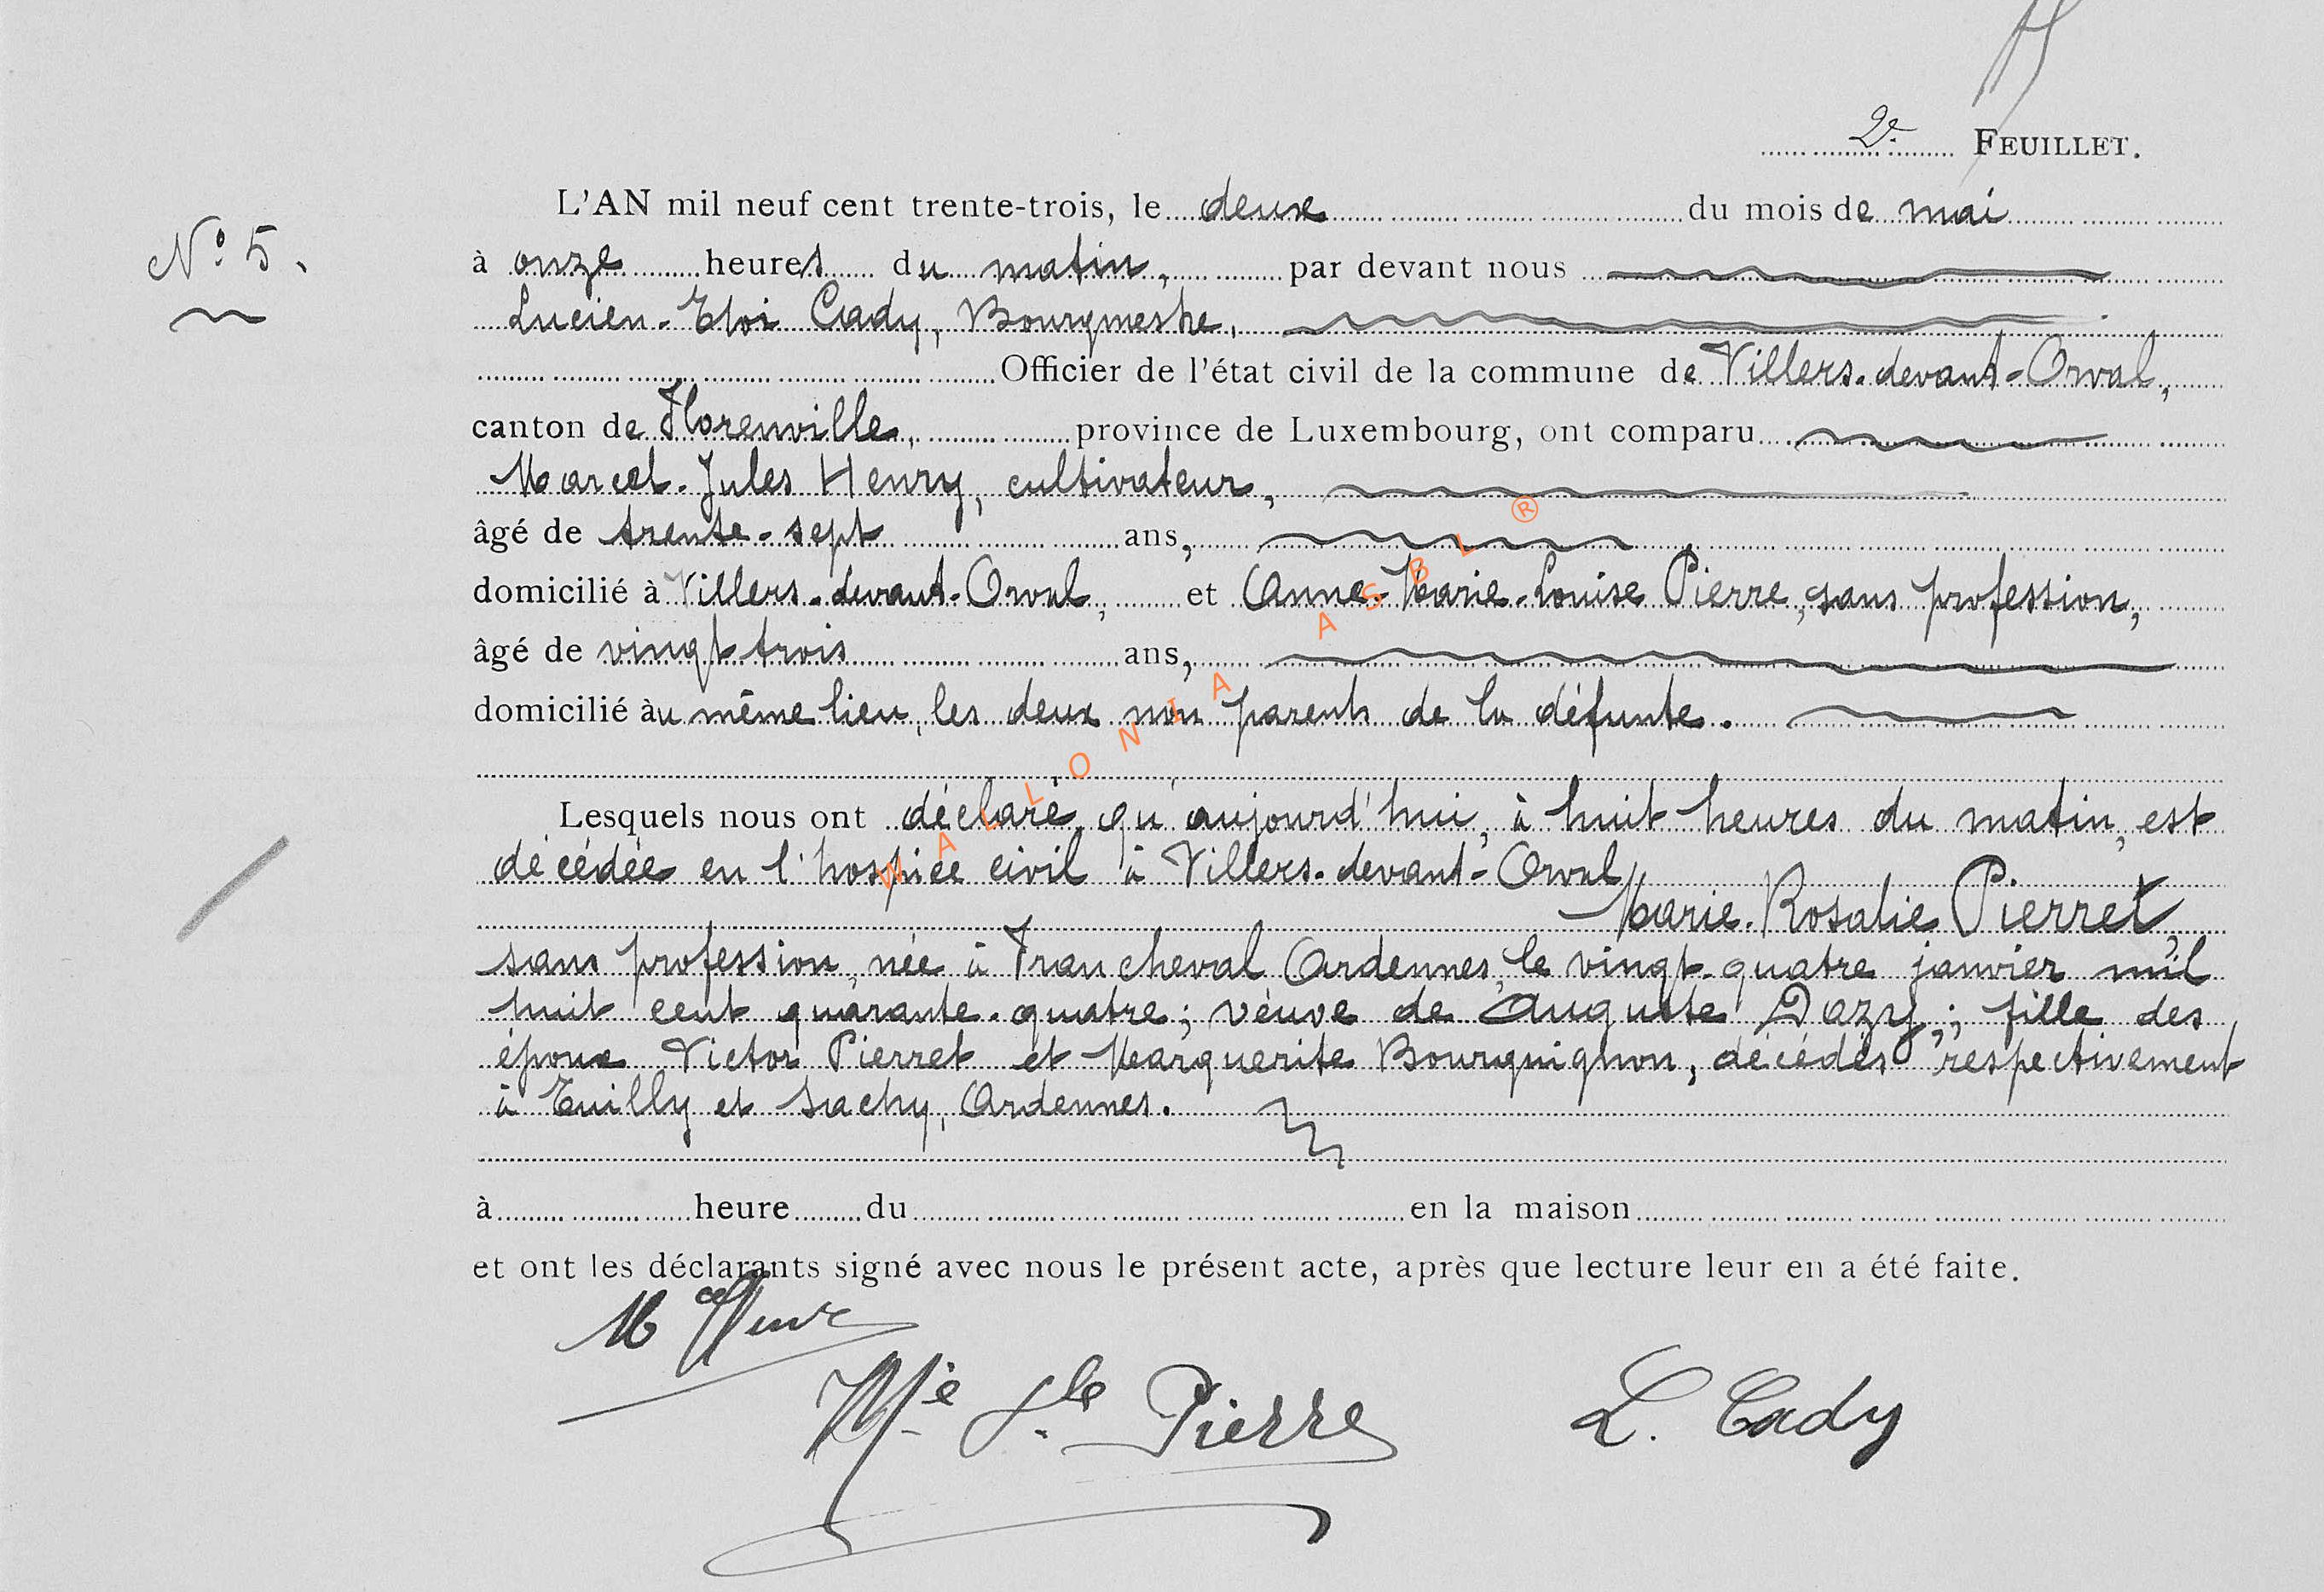 2e FEUILLET.
L'AN mil neuf cent trente-trois, le deux du mois de mai
N° 5.
à onze heures du matin, par devant nous
Lucien-Eloi Cady, Bourgmestre,
Officier de l'état civil de la commune de Villers-devant-Orval,
canton de Florenville, province de Luxembourg, ont comparu
Marcel-Jules Henry, cultivateur,
âgé de trente-sept ans,
domicilié à Villers-devant-Orval, et Anne-Marie-Louise Pierre, sans profession,
âgé de vingt-trois ans,
domicilié au même lieu, les deux non parents de la défunte.
Lesquels nous ont déclaré qu'aujourd'hui, à huit heures du matin, est
décédée en l'hospice civil à Villers-devant-Orval
Marie-Rosalie Pierret,
sans profession, née à Francheval Ardennes, le vingt-quatre janvier mil
huit cent quarante-quatre; veuve de Auguste Dazy; fille des
époux Victor Pierret et Marguerite Bourguignon, décédés respectivement
à Euilly et Sachy, Ardennes.
à heure du en la maison
et ont les déclarants signé avec nous le présent acte, après que lecture leur en a été faite.
Mcel Henry
Mie Lse Pierre
L. Cady
WALLONIA ASBL ®